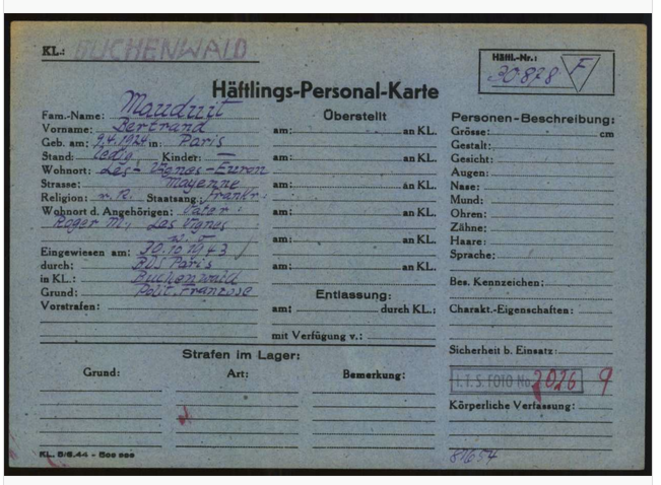 KL.: BUCHENWALD
Häftl.-Nr.:
30878 F
Häftlings-Personal-Karte
Fam.-Name: Mauduit
Vorname: Bertrand
Geb. am: 9.4.1924 in: Paris
Stand: ledig Kinder: —
Wohnort: Las-Vignes-
Strasse: Mayenne
Religion: r.k. Staatsang.: Frankr.
Wohnort d. Angehörigen: Vater:
Roger M., Las Vignes
w. o.
Eingewiesen am: 30.10.1943
durch: BDS Paris
in KL.: Buchenwald
Grund: Polit. Franzose
Vorstrafen:
Überstellt
am: an KL.
am: an KL.
am: an KL.
am: an KL.
am: an KL.
am: an KL.
Entlassung:
am: durch KL.:
mit Verfügung v.:
Personen-Beschreibung:
Grösse: cm
Gestalt:
Gesicht:
Augen:
Nase:
Mund:
Ohren:
Zähne:
Haare:
Sprache:
Bes. Kennzeichen:
Charakt.-Eigenschaften:
Sicherheit b. Einsatz:
I.T.S. FOTO No. 2026 9
Körperliche Verfassung:
Strafen im Lager:
Grund: Art: Bemerkung:
KL. 5/6.44 - 500 000